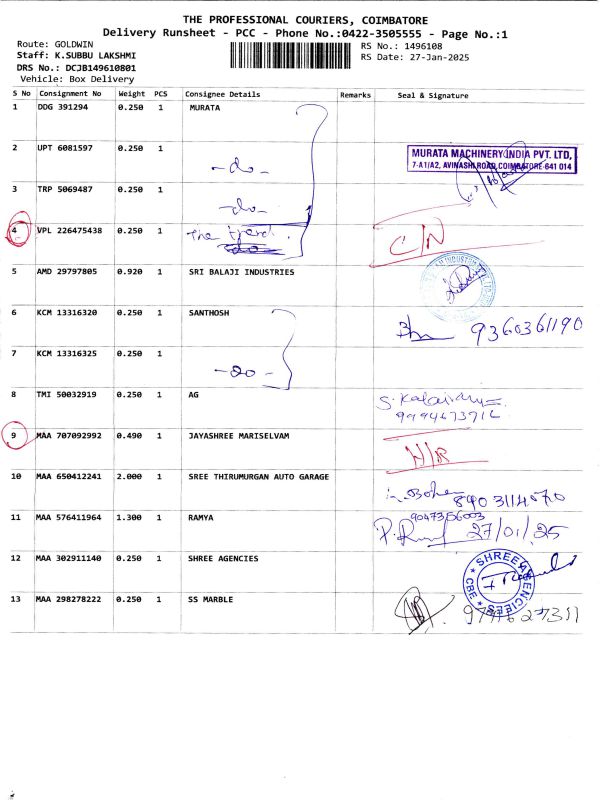 THE PROFESSIONAL COURIERS, COIMBATORE
Delivery Runsheet - PCC - Phone No.:0422-3505555 - Page No.:1
Route: GOLDWIN
Staff: K.SUBBU LAKSHMI
DRS No.: DCJB149610801
Vehicle: Box Delivery
RS No.: 1496108
RS Date: 27-Jan-2025
S No Consignment No Weight PCS Consignee Details Remarks Seal & Signature
1 DDG 391294 0.250 1 MURATA
2 UPT 6081597 0.250 1 -do-
MURATA MACHINERY INDIA PVT. LTD,
7-A1/A2, AVINASHI ROAD, COIMBATORE-641 014
3 TRP 5069487 0.250 1 -do-
4 VPL 226475438 0.250 1 The
5 AMD 29797805 0.920 1 SRI BALAJI INDUSTRIES
6 KCM 13316320 0.250 1 SANTHOSH
9360361190
7 KCM 13316325 0.250 1 -do-
8 TMI 50032919 0.250 1 AG
9 MAA 707092992 0.490 1 JAYASHREE MARISELVAM
10 MAA 650412241 2.000 1 SREE THIRUMURGAN AUTO GARAGE
11 MAA 576411964 1.300 1 RAMYA
27/01/25
12 MAA 302911140 0.250 1 SHREE AGENCIES
SHREE AGENCIES
CBE
13 MAA 298278222 0.250 1 SS MARBLE